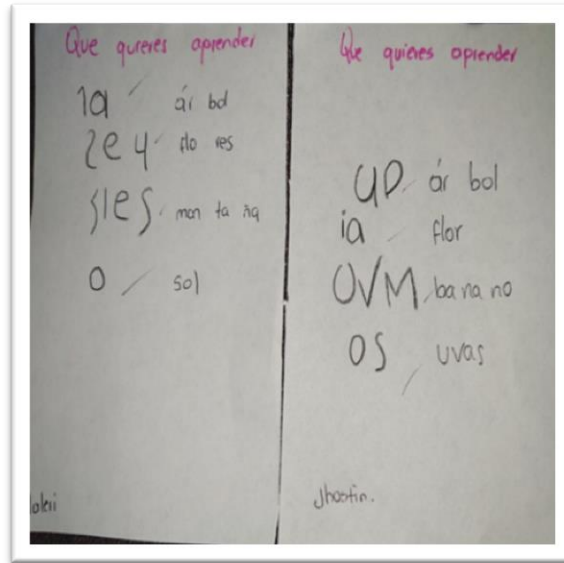 Que qureres aprender
1a / ár bol
2e y flo res
sles man ta ña
0 / sol
aleri
Que quieres aprender
UP ár bol
ia flor
OVM ba na no
OS uvas
Jhostin.